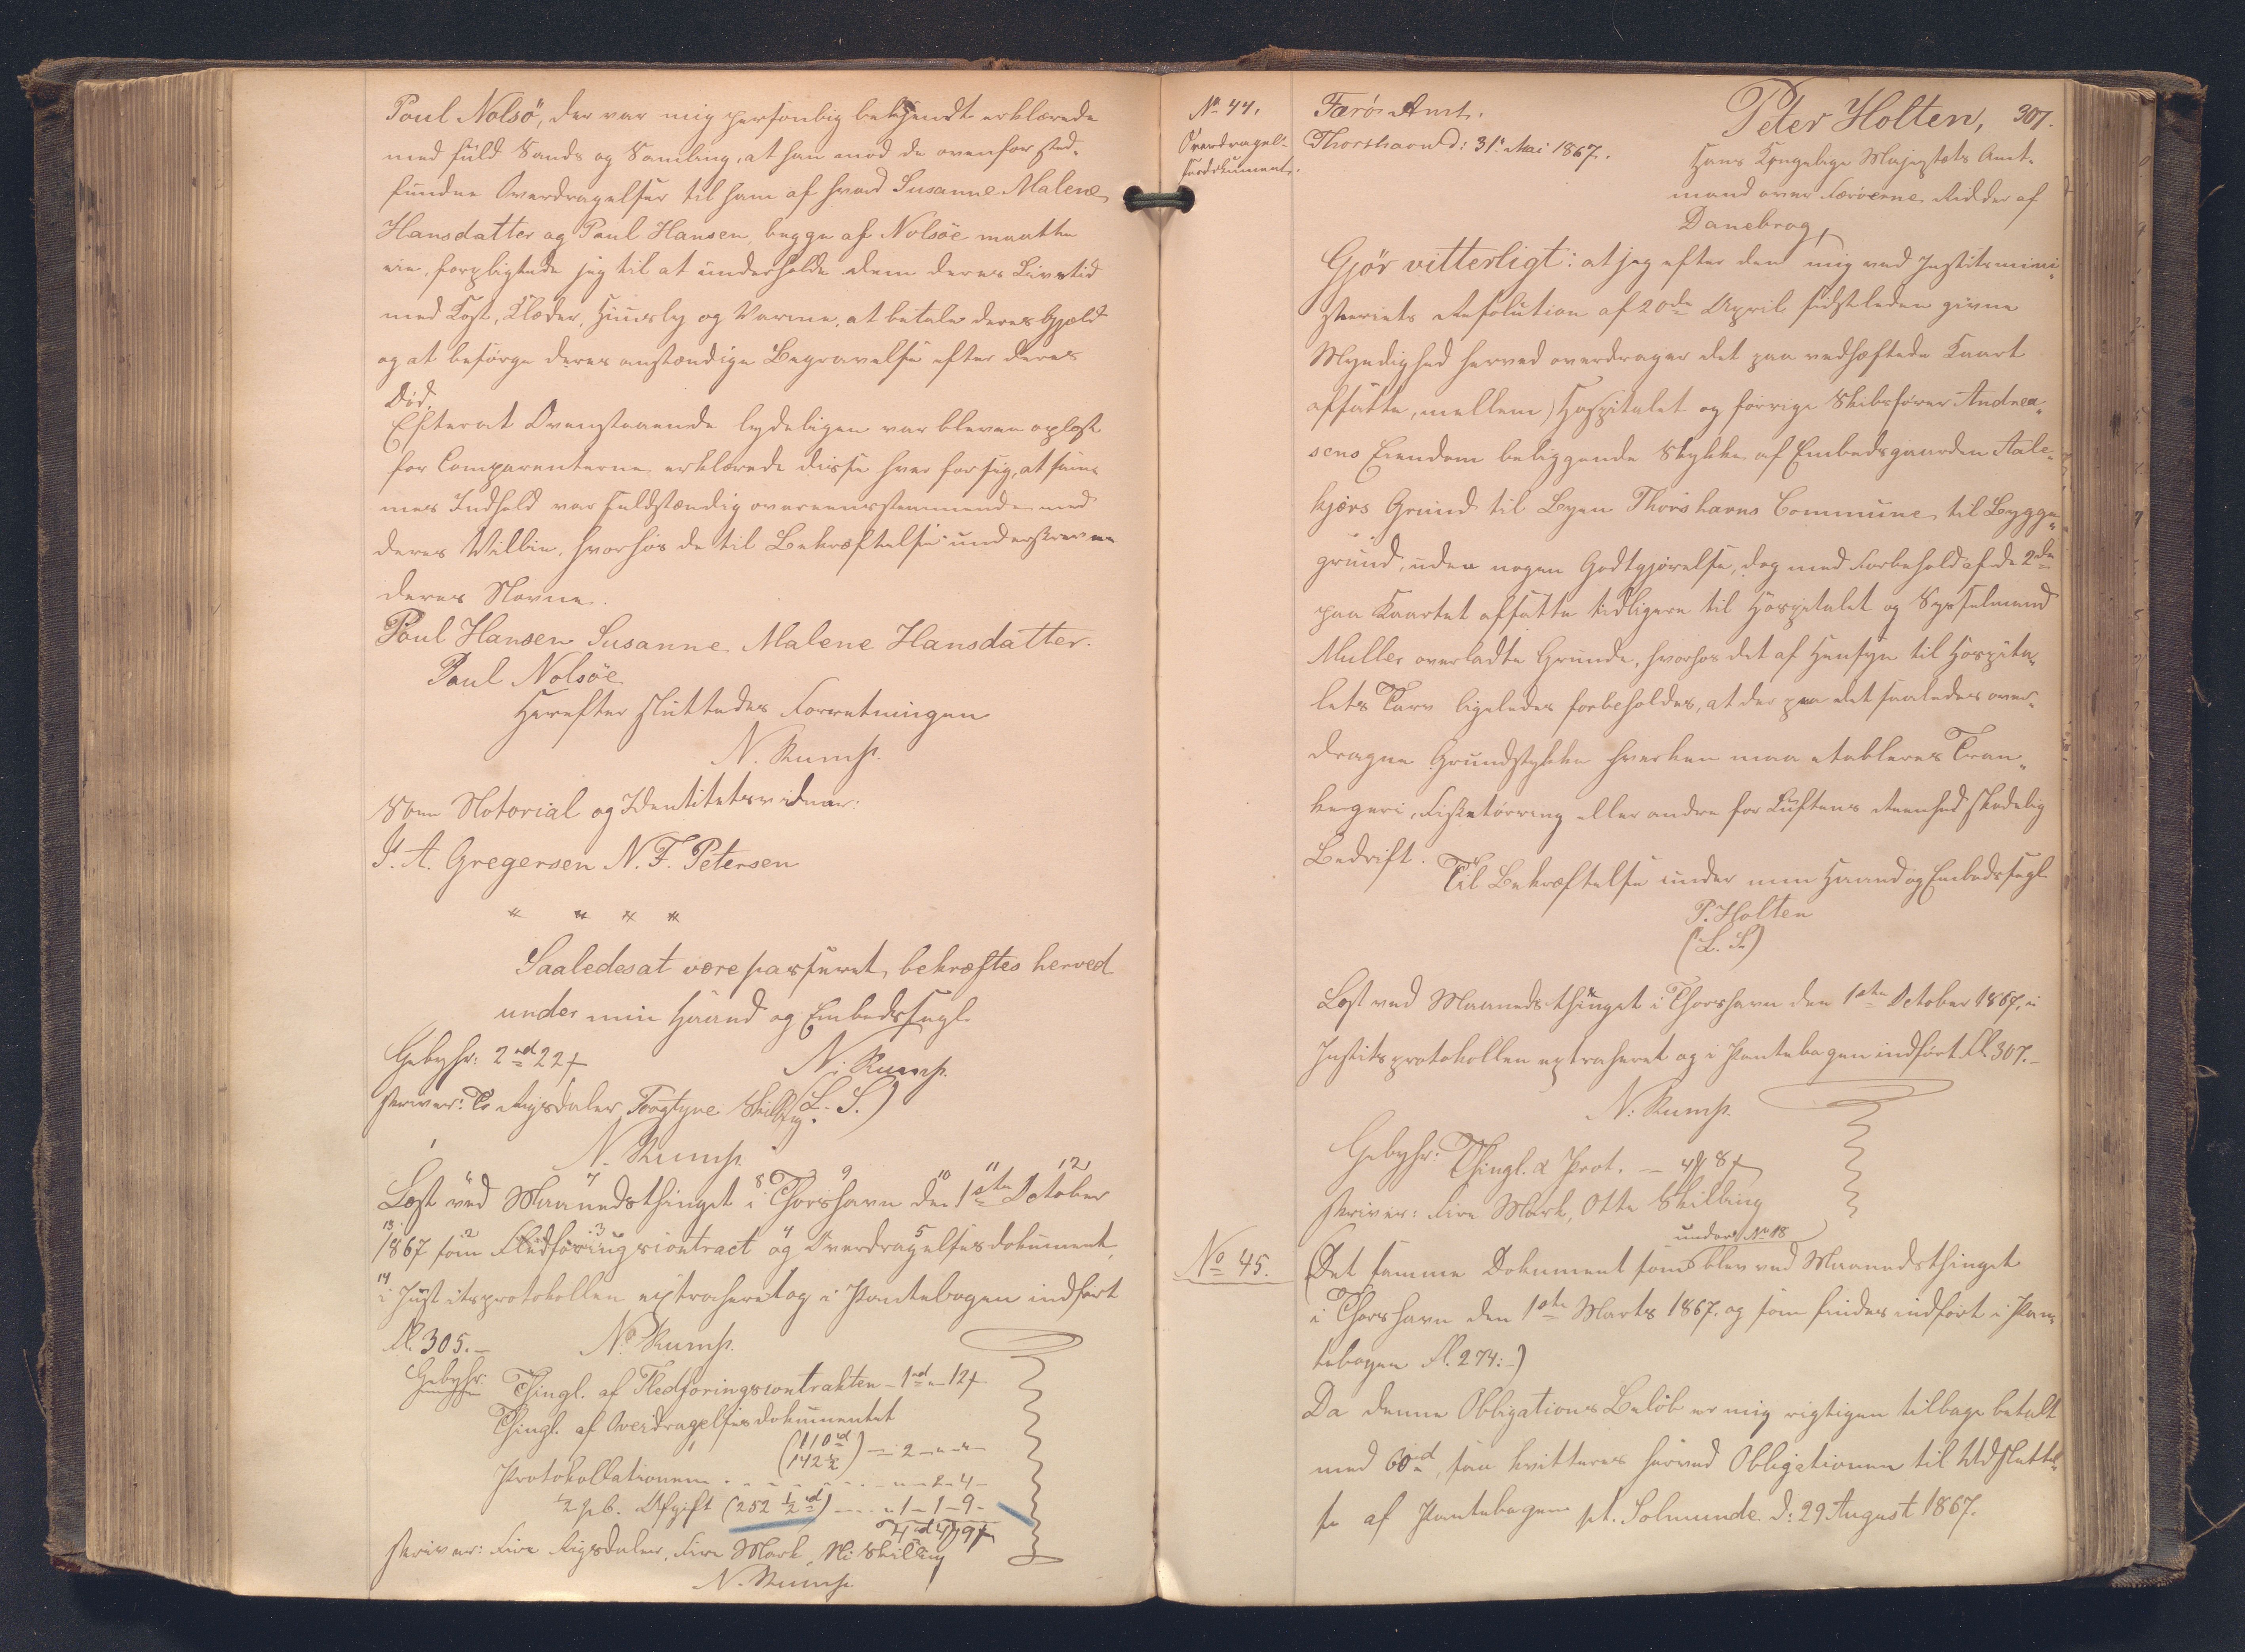 Poul Nolsö, der var mig personlig bekjendt erklærede
med fuld Sands og Samling, at han mod de ovenfor sted-
fundne Overdragelser til ham af hvad Susanne Malene
Hansdatter og Poul Hansen, begge af Nolsöe maatte
eie, forpligtede sig til at underholde dem deres Livstid
med Kost, Klæder, Huusly og Varme, at betale deres Gjæld
og at besörge deres anstændige Begravelse efter deres
Död.
Efterat Ovenstaaende lydeligen var bleven oplæst
for Comparenterne erklærede disse hver for sig, at sam-
mes Indhold var fuldstændig overeensstemmende med
deres Villie, hvorhos de til Bekræftelse underskreven
deres Navne.
Poul Hansen Susanne Malene Hansdatter.
Poul Nolsöe
Herefter sluttedes Forretningen
N. Rump.
Som Notorial og Identitetsvidner:
J. A. Gregersen N. F. Petersen
" " " "
Saaledes at være passeret, bekræftes herved
under min Haand og Embedssegl.
Gebyhr: 2 rd 22 s
N. Rump.
skriver: To Rigsdaler Togtyve Skilling. (L. S.)
N. Rump.
Læst ved Maanedsthinget i Thorshavn den 1ste October
1867 som Fledföringscontract og Overdragelsesdokument,
i Justitsprotokollen extraheret og i Pantebogen indfört
Fl. 305.-
N. Rump.
Gebyhr: Thingl. af Fledföringscontrakten - 1 rd " - 12 s
Thingl. af Overdragelsesdokumentet
(110 rd
142 ½) - 2 - " - " -
Protokollationen . - - - - - " - 2 - 4 -
½ pc. Afgift (252 ½ rd) - - - 1 - 1 - 9 -
4 rd 4 ℳ 9 s
skriver: Fire Rigsdaler, Fire Mark, Ni Skilling
N. Rump.
No 44.
Overdragel-
sesdokument.
Færö Amt.
Thorshavn d: 31te Mai 1867.
Peter Holten, 307.
Hans Kongelige Majestæts Amt-
mand over Færöerne, Ridder af
Danebrog,
Gjör vitterligt: at jeg efter den mig ved Justitsmini-
steriets Resolution af 20de April sidstleden givne
Myndighed herved overdrager det paa vedhæftede Kaart
afsatte, mellem Hospitalet og forrige Skibsförer Andrea-
sens Eiendom beliggende Stykke af Embedsgaarden Aale-
kjærs Grund til Byen Thorshavns Commune til Bygge-
grund, uden nogen Godtgjörelse, dog med Forbehold af de 2de
paa Kaartet afsatte tidligere til Hospitalet og Sysselmand
Muller overladte Grunde, hvorhos det af Hensyn til Hospita-
lets Tarv ligeledes forbeholdes, at der paa det saaledes over-
dragne Grundstykke hverken maa etableres Tran-
kogeri, Fisketörring eller andre for Luftens Reenhed skadelig
Bedrift.
Til Bekræftelse under min Haand og Embedssegl
P. Holten
(L. S.)
Læst ved Maanedsthinget i Thorshavn den 1ste October 1867, i
Justitsprotokollen extraheret og i Pantebogen indfört Fl. 307.-
N. Rump.
Gebyhr: Thingl. & Prot. - 4 ℳ 8 s
skriver: Fire Mark, Otte Skilling
under No 18
No 45.
(Det samme Dokument som blev ved Maanedsthinget
i Thorshavn den 1ste Marts 1867. og som findes indfört i Pan-
tebogen Fl. 274:-)
Da denne Obligations Belöb er mig rigtigen tilbage betalt
med 60 rd, saa kvitteres herved Obligationen til Udslettel-
se af Pantebogen pt. Solmunde d: 29 August 1867.